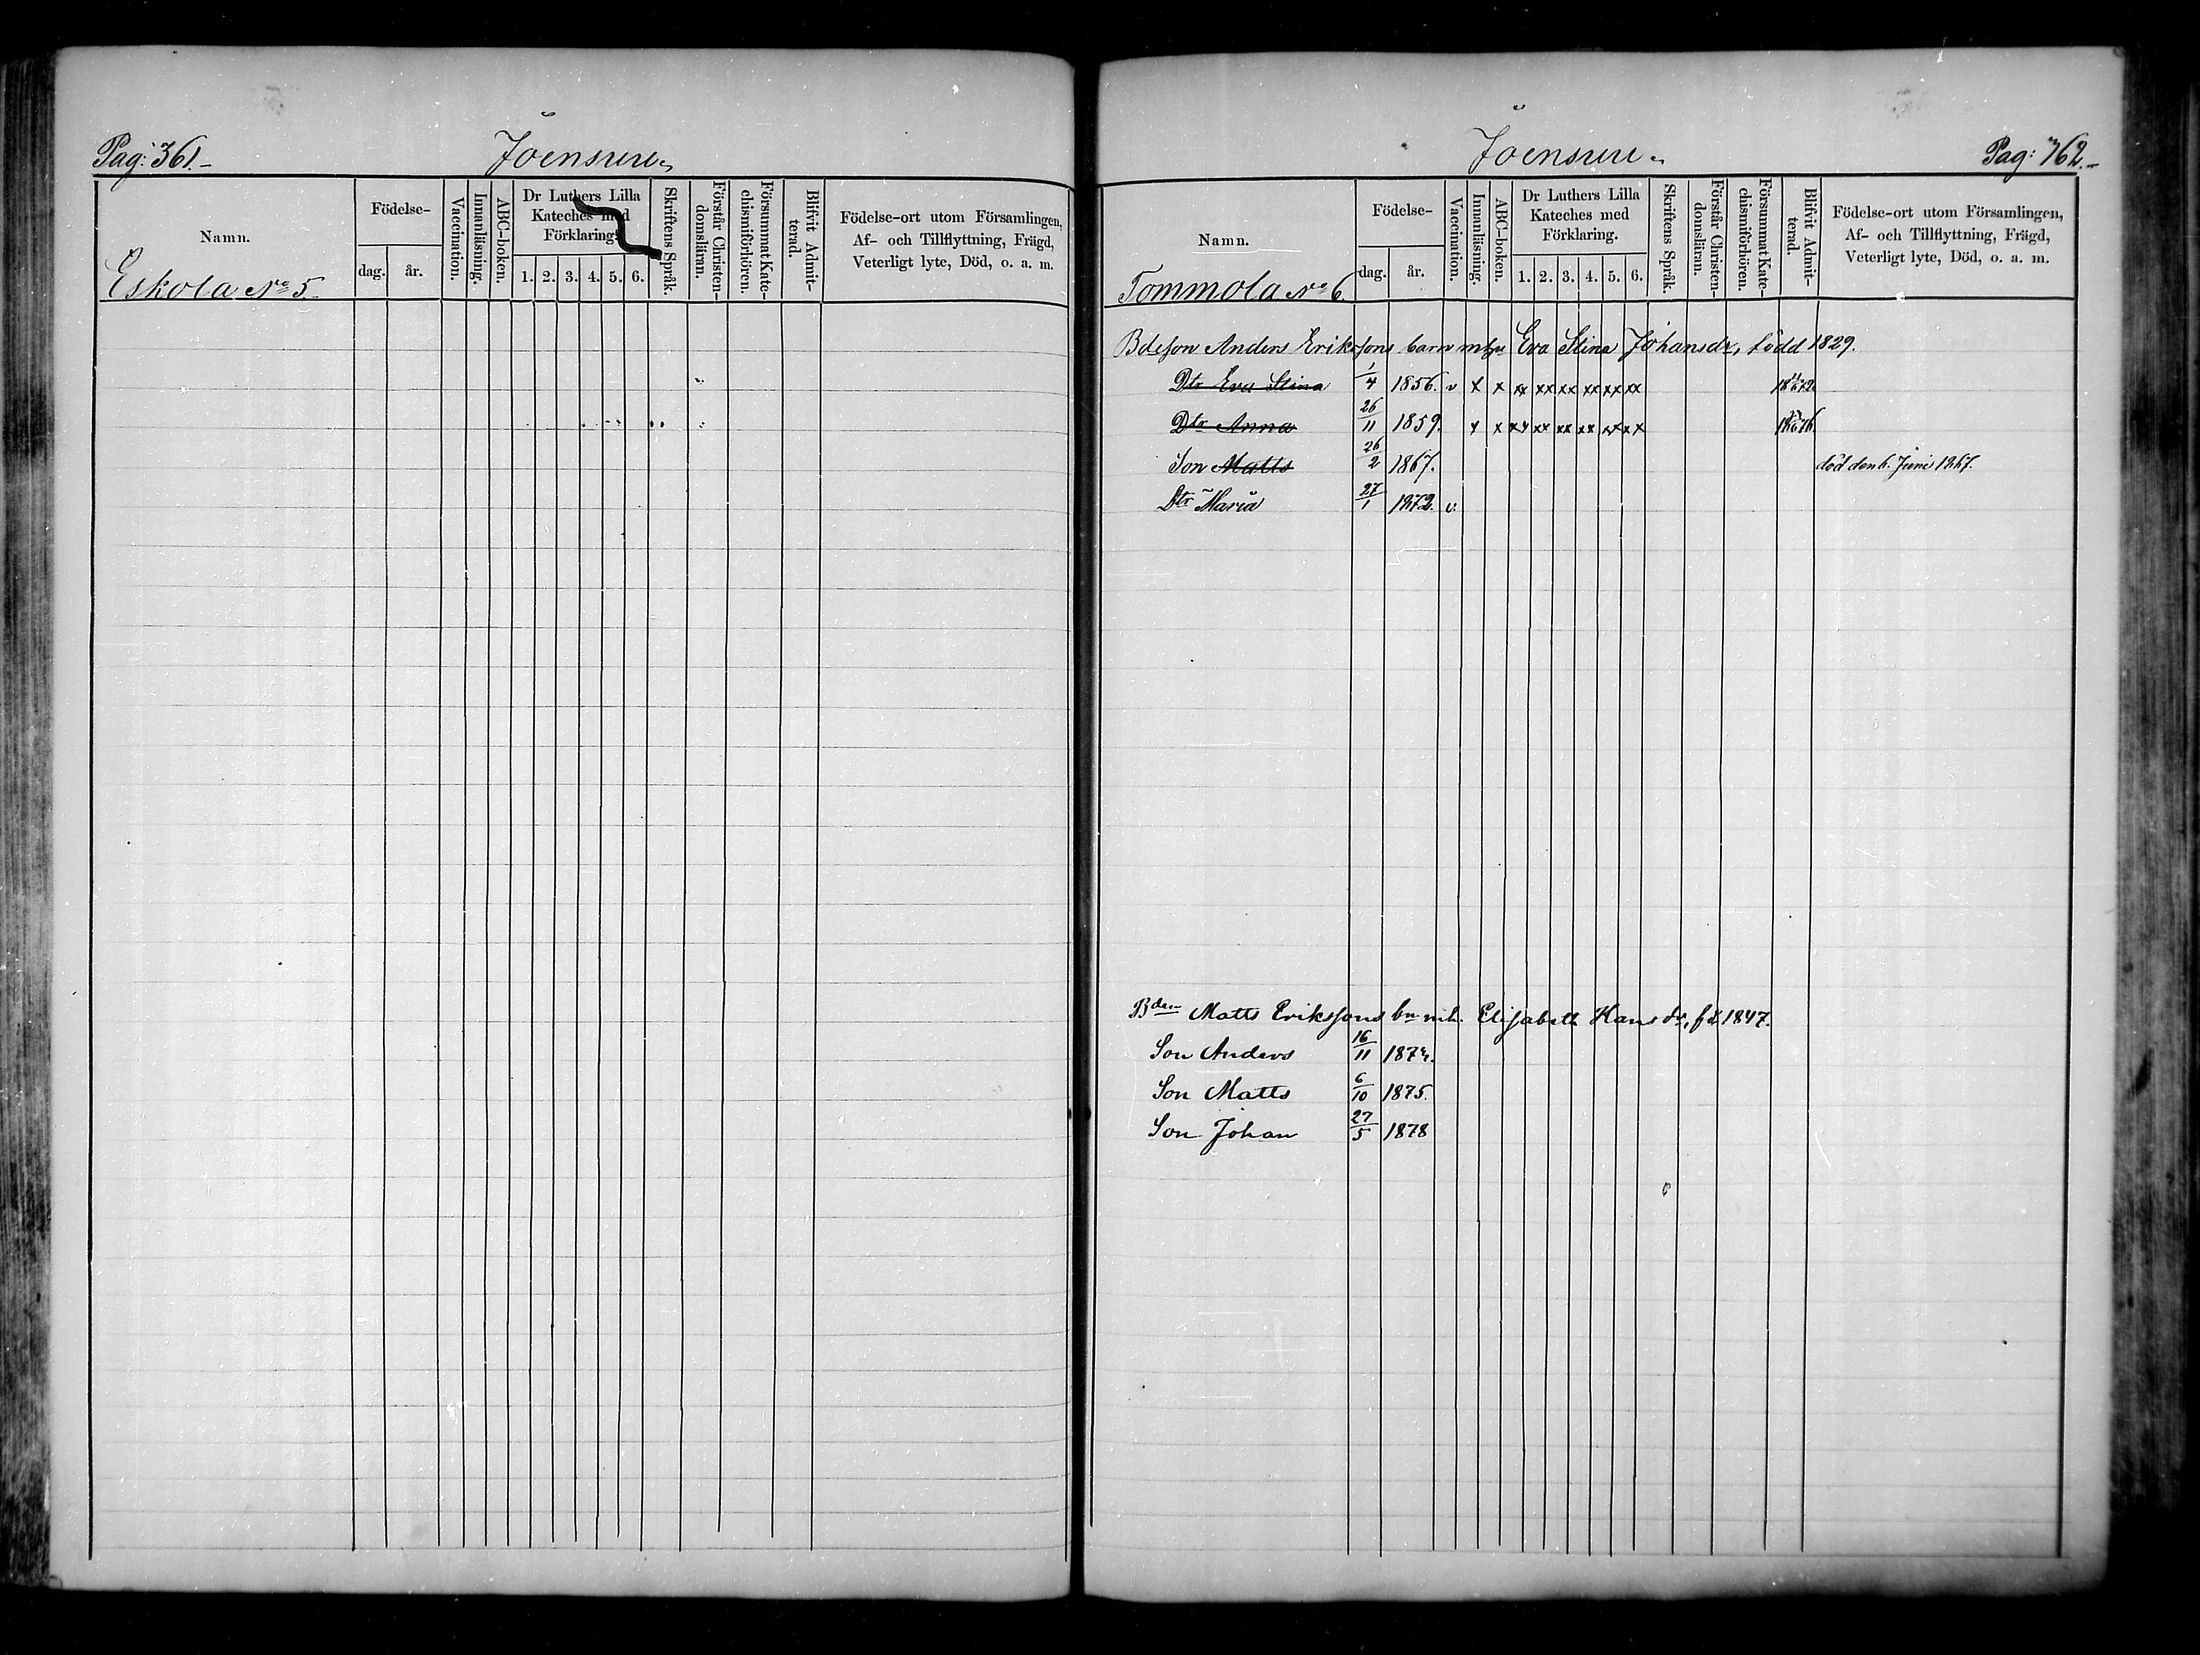 Pag: 361.
Joensuu.
Namn.
Födelse-
dag. år.
Vaccination.
Innanläsning.
ABC-boken.
Dr Luthers Lilla
Kateches med
Förklaring.
1. 2. 3. 4. 5. 6.
Skriftens Språk.
Förstår Christen-
domsläran.
Försummat Kate-
chismiförhören.
Blifvit Admit-
terad.
Födelse-ort utom Församlingen,
Af- och Tillflyttning, Frägd,
Veterligt lyte, Död, o. a. m.
Eskola No 5.
Joensuu.
Pag: 362.
Namn.
Födelse-
dag. år.
Vaccination.
Innanläsning.
ABC-boken.
Dr Luthers Lilla
Kateches med
Förklaring.
1. 2. 3. 4. 5. 6.
Skriftens Språk.
Förstår Christen-
domsläran.
Försummat Kate-
chismiförhören.
Blifvit Admit-
terad.
Födelse-ort utom Församlingen,
Af- och Tillflyttning, Frägd,
Veterligt lyte, Död, o. a. m.
Tommola No 6.
Bdeson Anders Erikssons barn m h. Eva Stina Johansdr, född 1829.
Dtr Eva Stina 1/4 1856. v x x xx xx xx xx xx xx
Dtr Anna 26/11 1859. x x xx xx xx xx xx xx
Son Matts 26/2 1867. död den 6. Juni 1867.
Dtr Maria 27/1 1872. v.
Bden Matts Erikssons bn m h. Elisabeth Hansdr, fd 1847.
Son Anders 16/11 1872.
Son Matts 6/10 1875.
Son Johan 27/5 1878